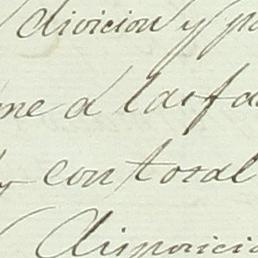 division y pa
me a las fa
y con toral
Disposicio